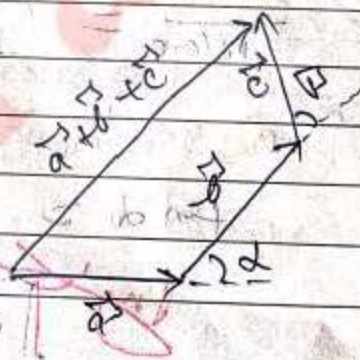 a⃗+b⃗+c⃗
c⃗
b⃗
2α
a⃗